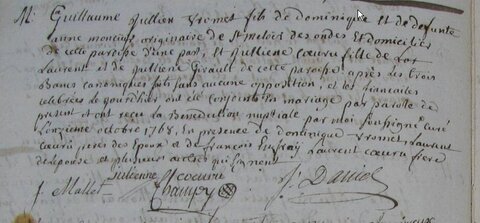 M: Guillaume Jullien Vromet fils de dominique et de defunte
anne originaire de St meloir des ondes et domicilié
de cette paroisse d'une part, et Jullienne Cœuru fille de
Laurent et de Jullienne Girault de cette paroisse après les trois
Bans canoniques faits sans aucune opposition, et les fiancailles
celebrées le ont été conjoints en mariage par parole de
present et ont recu la Benediction nuptiale par moi soussigné curé
l'onzieme octobre 1768, en presence de dominique Vromet, Laurent
Cœuru peres des Epoux et de François Laurent cœuru frere
de l'epouse et plusieurs autres qui
J. Mallet Jullienne Coeuru